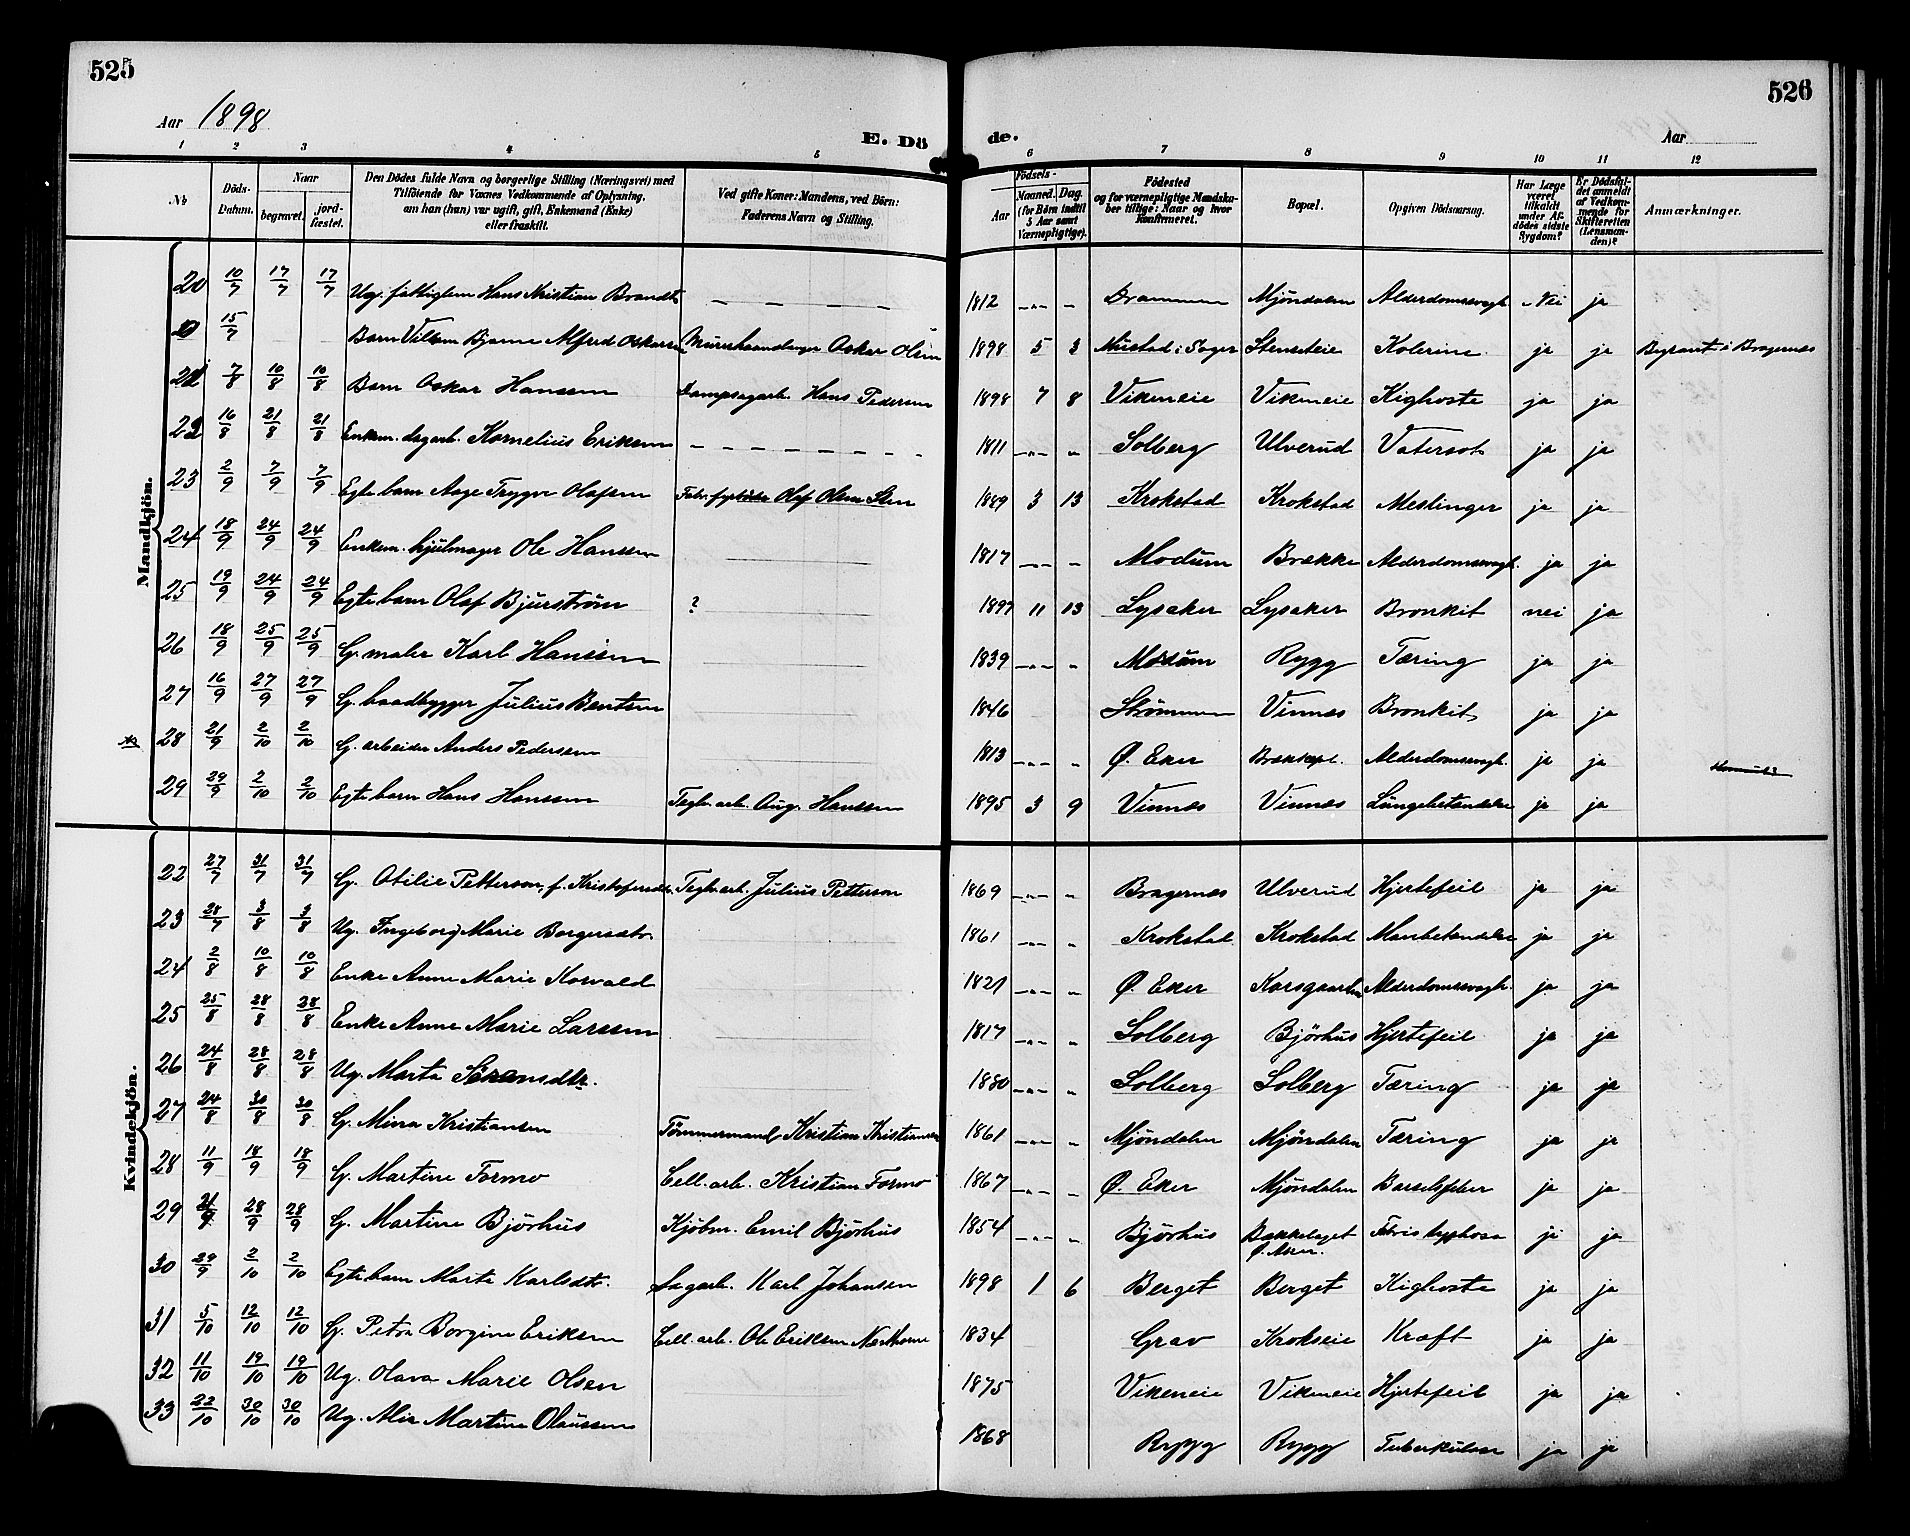 525
526
Aar 1898
E. Dö
de.
Aar
1 2 3 4 5 6 7 8 9 10 11 12
No
Döds-Datum.
Naar
begravet.
jord-fæstet.
Den Dödes fulde Navn og borgerlige Stilling (Næringsvei) med
Tilföiende for Voxnes Vedkommende af Oplysning,
om han (hun) var ugift, gift, Enkemand (Enke)
eller fraskilt.
Ved gifte Koner: Mandens, ved Börn:
Faderens Navn og Stilling.
Födsels-
Aar
Maaned. Dag.
(for Börn indtil
5 Aar samt
Værnepligtige).
Födested
og for værnepligtige Mandska-
ber tillige: Naar og hvor
konfirmeret.
Bopæl.
Opgiven Dödsaarsag.
Har Læge
været
tilkaldt
under Af-
dödes sidste
Sygdom?
Er Dödsfal-
det anmeldt
af Vedkom-
mende for
Skifteretten
(Lensman-
den)?
Anmærkninger.
Mandkjön.
20 10/7 17/7 17/7 Ug. fattiglem Hans Kristian Brandt 1812 Drammen Mjöndalen Alderdomssvagh. Nei ja
15/7 Barn Bjarne Alfred Oskarsen Oskar Olsen 1898 5 3 Mustad i Sager Stenseteie Kolerine ja ja Bragernes
21 7/8 10/8 10/8 Barn Oskar Hansen Dampsagarb. Hans Pedersen 1898 7 8 Vikeneie Vikeneie Kighoste ja ja
22 16/8 21/8 21/8 Enkem. dagarb. Kornelius Eriksen 1811 Solberg Ulverud Vatersot ja ja
23 2/9 7/9 7/9 Egte barn Aage Trygve Olafsen Olaf Olsen Sten 1889 3 13 Krokstad Krokstad Meslinger ja ja
24 18/9 24/9 24/9 Enkem. hjulmager Ole Hansen 1817 Modum Brække Alderdomssvagh. ja ja
25 19/9 24/9 24/9 Egte barn Olaf Bjurström ? 1897 11 13 Lysaker Lysaker Bronkit nei ja
26 18/9 25/9 25/9 G. maler Karl Hansen 1839 Modum Rygg Tæring ja ja
27 16/9 27/9 27/9 G. baadbygger Julius Bentsen 1846 Strömmen Vinnæs Bronkit ja ja
28 21/9 2/10 2/10 G. arbeider Anders Pedersen 1813 Ø. Eker Alderdomssvagh. ja ja
29 29/9 2/10 2/10 Egte barn Hans Hansen Teglv. arb. Aug. Hansen 1895 3 9 Vinnæs Vinnæs Lungebetændelse ja ja
Kvindekjön.
22 27/7 31/7 31/7 G. Otilie Petterson, f. Kristofersdtr. Teglv. arb. Julius Petterson 1869 Bragernæs Ulverud Hjertefeil ja ja
23 28/7 3/8 3/8 Ug. Ingeborg Marie Borgersdtr. 1861 Krokstad Krokstad Mavebetændelse ja ja
24 2/8 10/8 10/8 Enke Anne Marie Horvald 1821 Ø. Eker Korsgaarden Alderdomssvagh. ja ja
25 25/8 28/8 28/8 Enke Anne Marie Larssen 1817 Solberg Björhus Hjertefeil ja ja
26 24/8 28/8 28/8 Ug. Marta Sörensdtr. 1880 Solberg Solberg Tæring ja ja
27 24/8 30/8 30/8 G. Mina Kristiansen Tömmermand Kristian Kristiansen 1861 Mjöndalen Mjöndalen Tæring ja ja
28 11/9 18/9 18/9 G. Martine Formo Cell. arb. Kristian Formo 1867 Ø. Eker Mjöndalen Barselfeber ja ja
29 21/9 28/9 28/9 G. Martine Björhus Kjöbm. Emil Björhus 1854 Björhus Bakkelaget Ø. Aker. Febris typhosa ja ja
30 29/9 2/10 2/10 Egte barn Marta Karlsdtr. Sagarb. Karl Johansen 1898 1 6 Berget Berget Kighoste ja ja
31 5/10 12/10 12/10 G. Petra Borgine Eriksen Cell. arb. Ole Eriksen 1834 Grav Krokseie Kræft ja ja
32 11/10 19/10 19/10 Ug. Olava Marie Olsen 1875 Vikeneie Vikeneie Hjertefeil ja ja
33 22/10 30/10 30/10 Ug. Martine Olaussen 1868 Rygg Rygg Tuberkulose ja ja